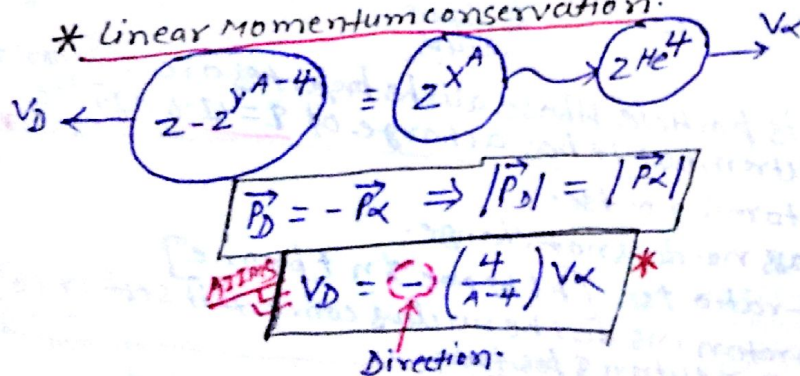 * Linear Momentum conservation.
V_D ← Z-2 Y^A-4 = Z X^A → 2 He^4 → Vα
P⃗_D = - P⃗α ⇒ |P⃗_D| = |P⃗α|
AIIMS V_D = (-) (4/A-4) Vα *
Direction.